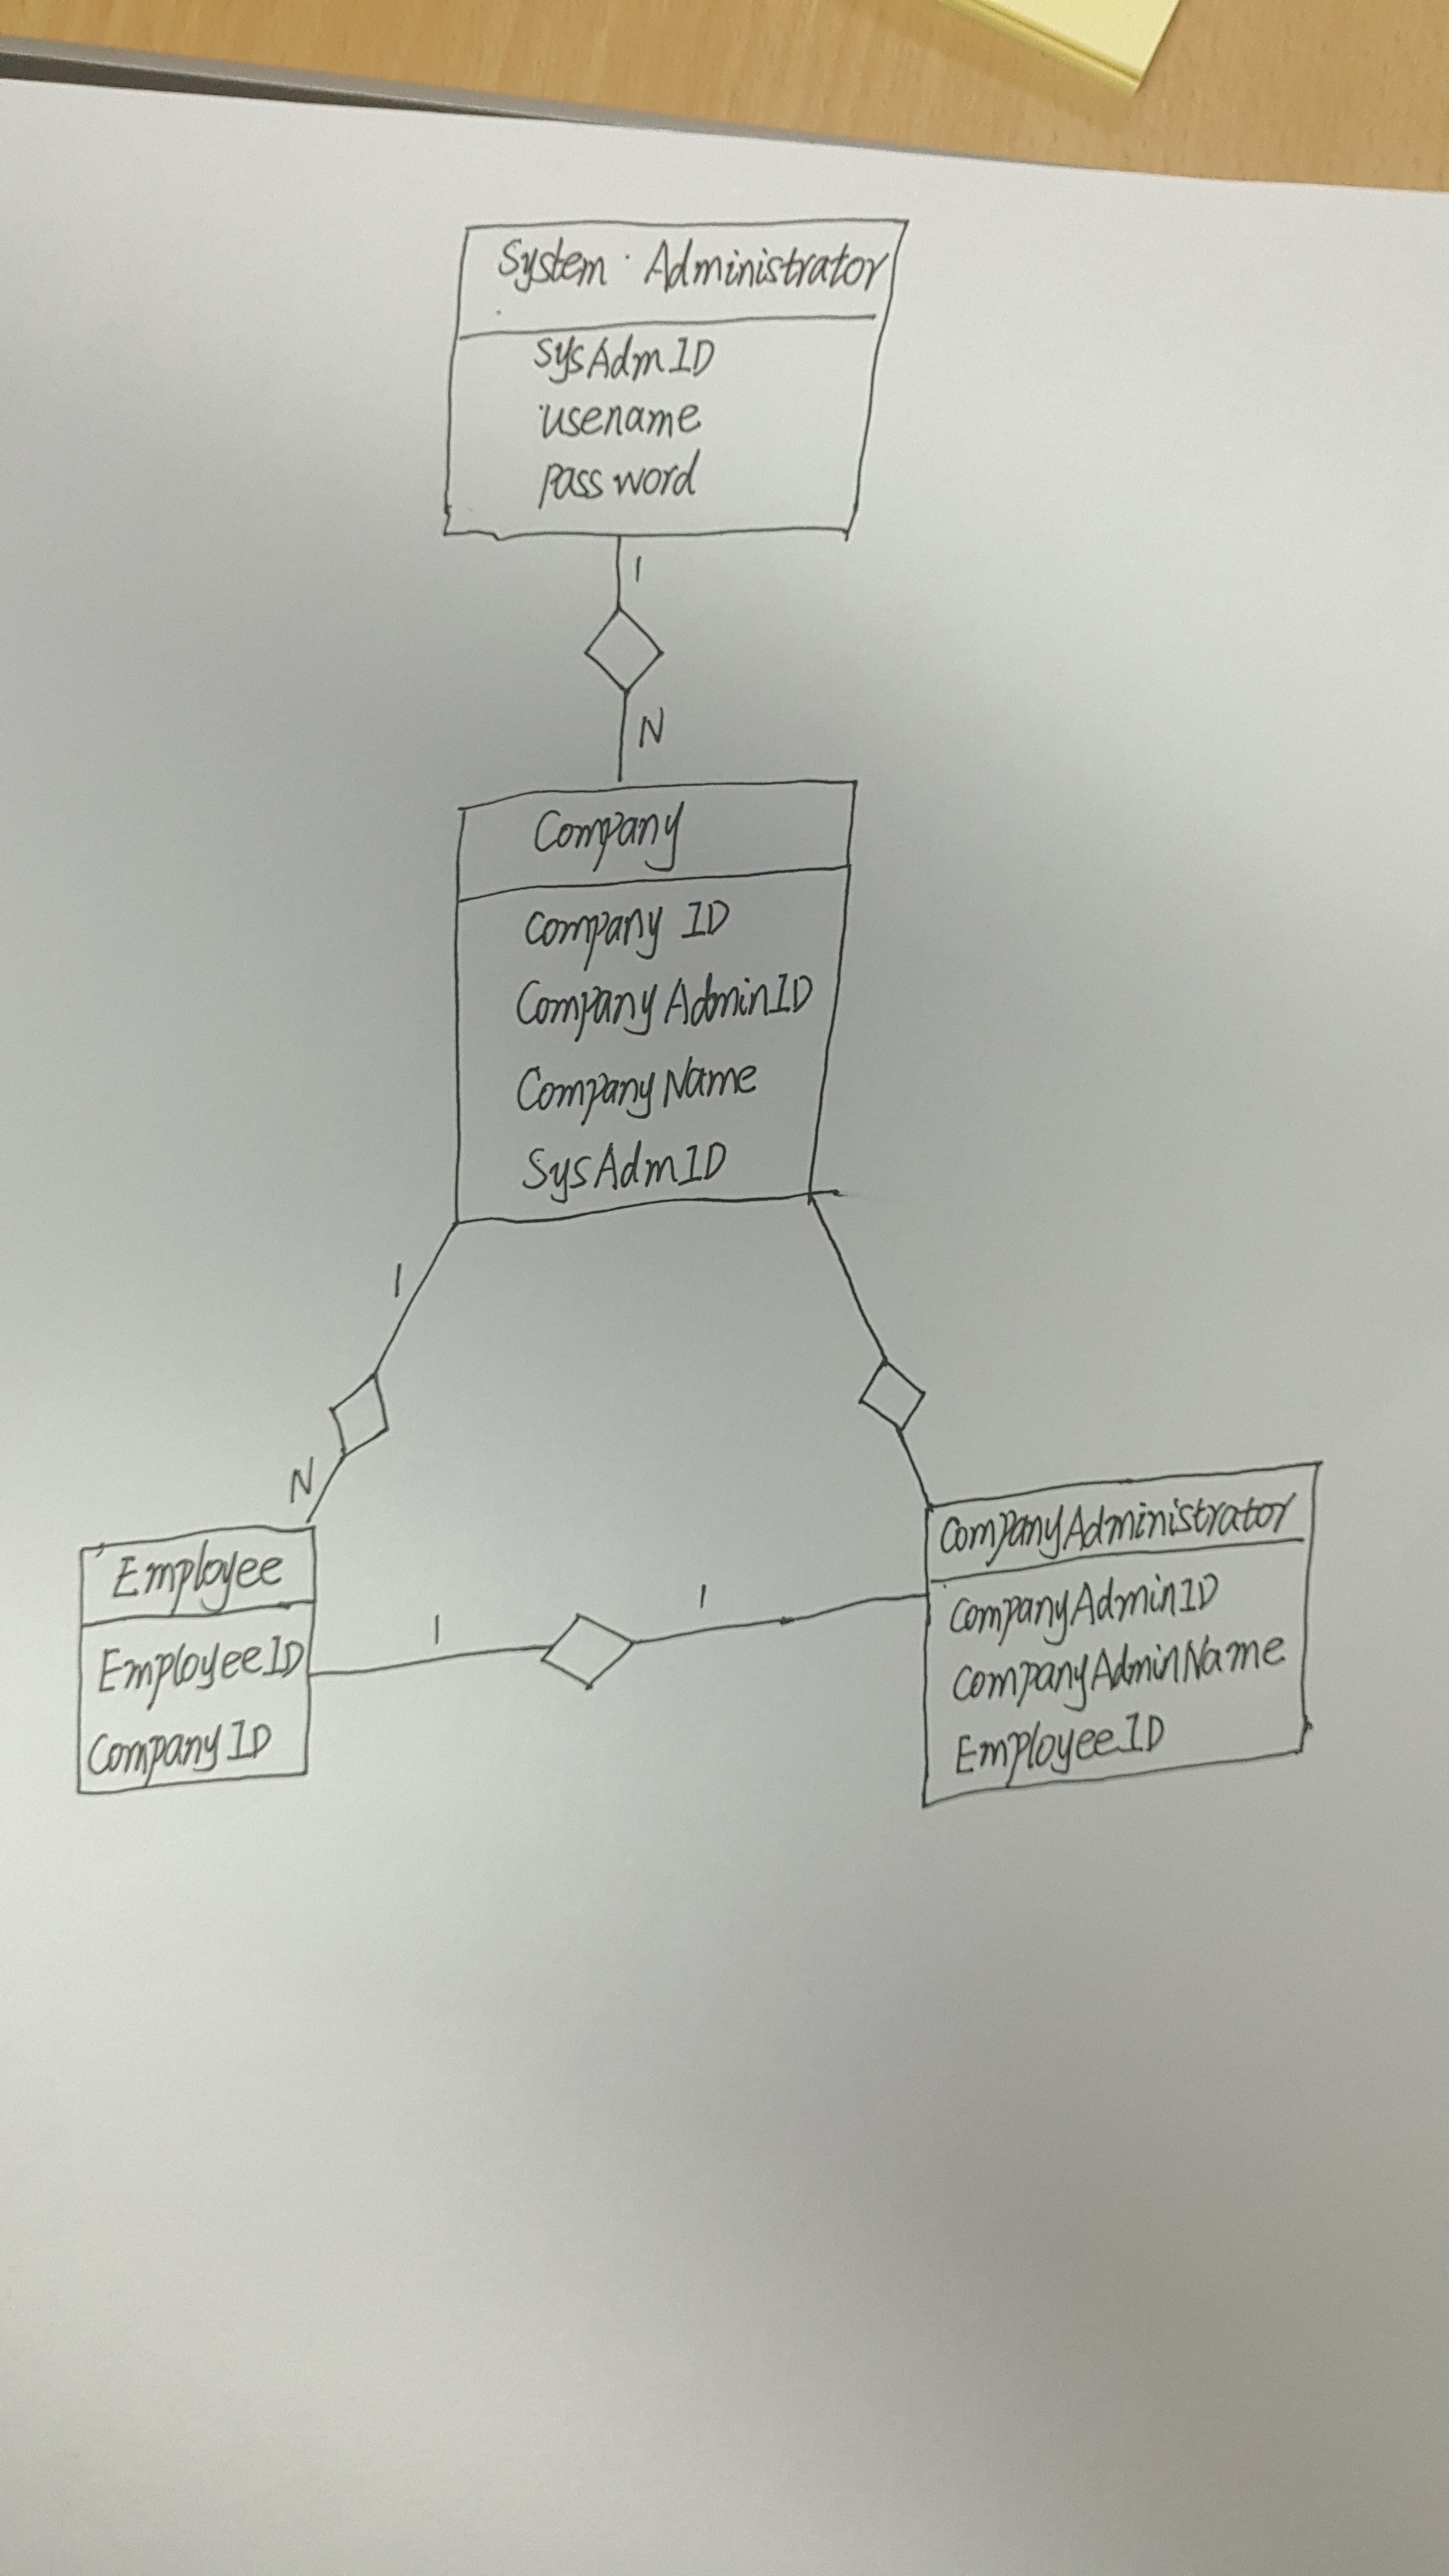 System Administrator
SysAdmID
usename
password
1
N
Company
Company ID
CompanyAdminID
CompanyName
SysAdmID
1
N
Employee
EmployeeID
CompanyID
1
1
CompanyAdministrator
CompanyAdminID
CompanyAdminName
EmployeeID